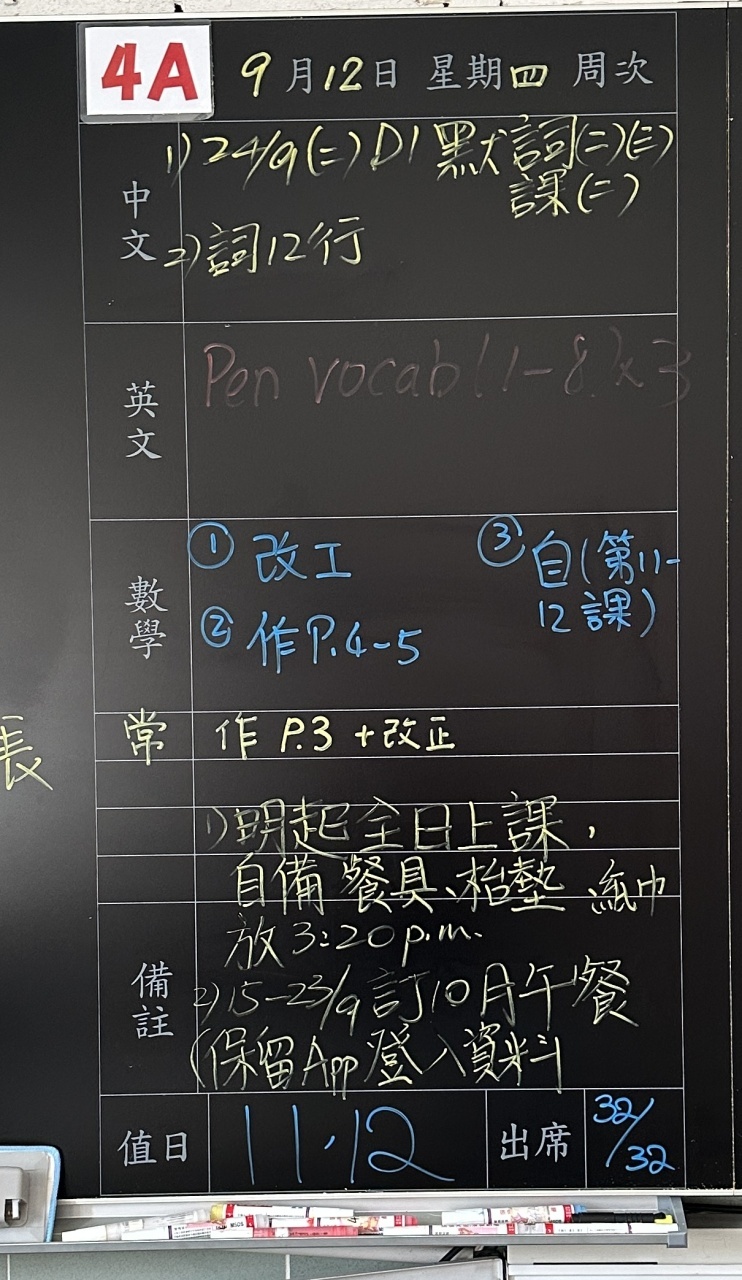 4A
9月12日 星期四 周次
中文
1) 24/9(二) D1 默 詞(二)(三)
課(二)
2) 詞12行
英文
Pen vocab(1-8)x3
數學
① 改工
② 作P.4-5
③ 自(第11-
12課)
常 作 P.3 +改正
長
備註
1) 明起全日上課,
自備餐具、枱墊、紙巾
放3:20p.m.
2) 15-23/9訂10月午餐
(保留App登入資料
值日 11.12 出席 32/32